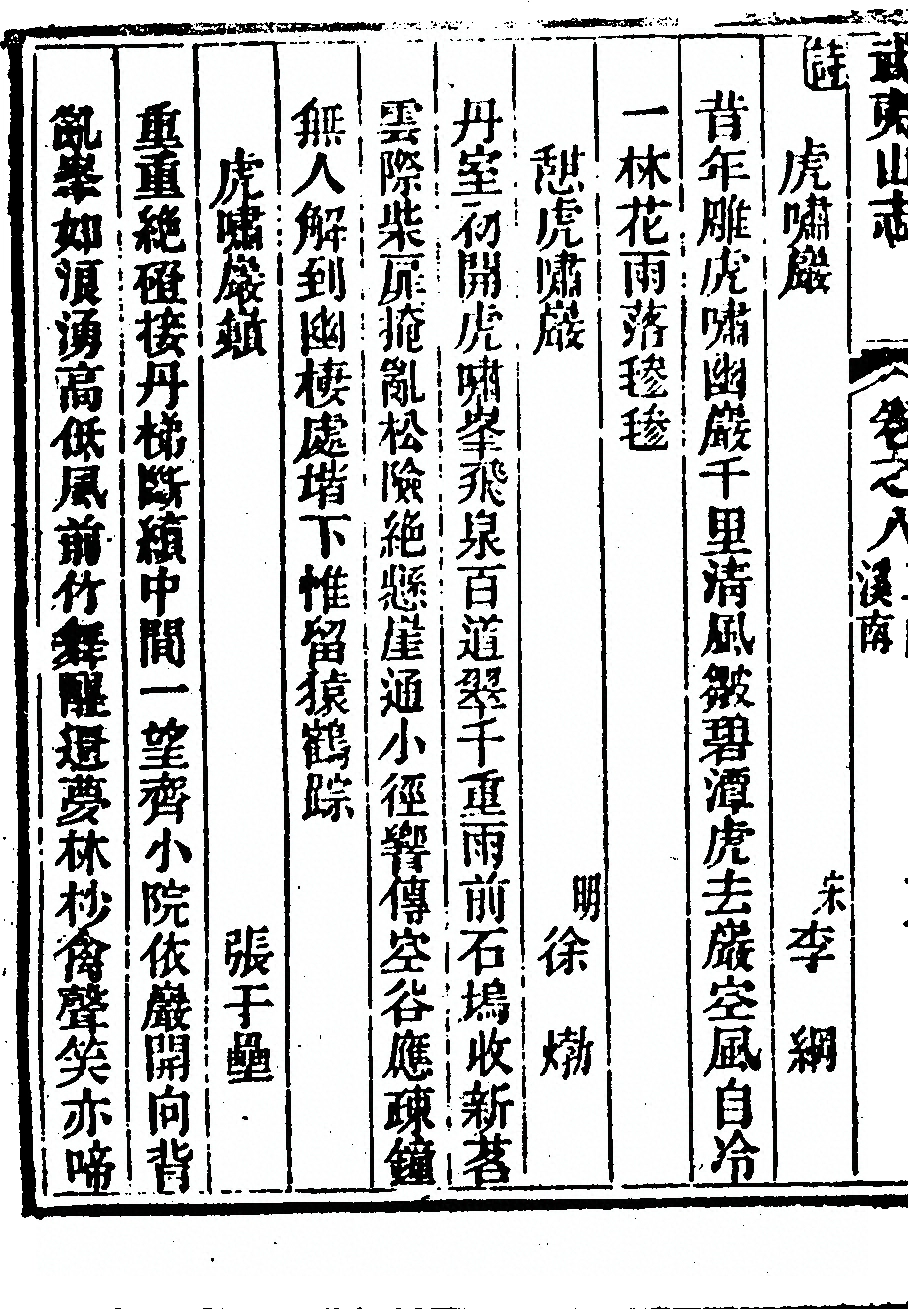 武夷山志 卷之八 溪南
詩
虎嘯巖 宋 李綱
昔年雕虎嘯幽巖千里清風皺碧潭虎去巖空風自冷
一林花雨落毿毿
憩虎嘯巖 明 徐𤊹
丹室初開虎嘯峯飛泉百道翠千重雨前石塢收新茗
雲際柴扉掩亂松險絕懸崖通小徑響傳空谷應疎鐘
無人解到幽棲處堦下惟留猿鶴踪
虎嘯巖 張于壘
重重絶磴接丹梯斷續中間一望齊小院依巖開向背
亂峯如湧高低風前竹舞醒還夢林杪禽聲笑亦啼